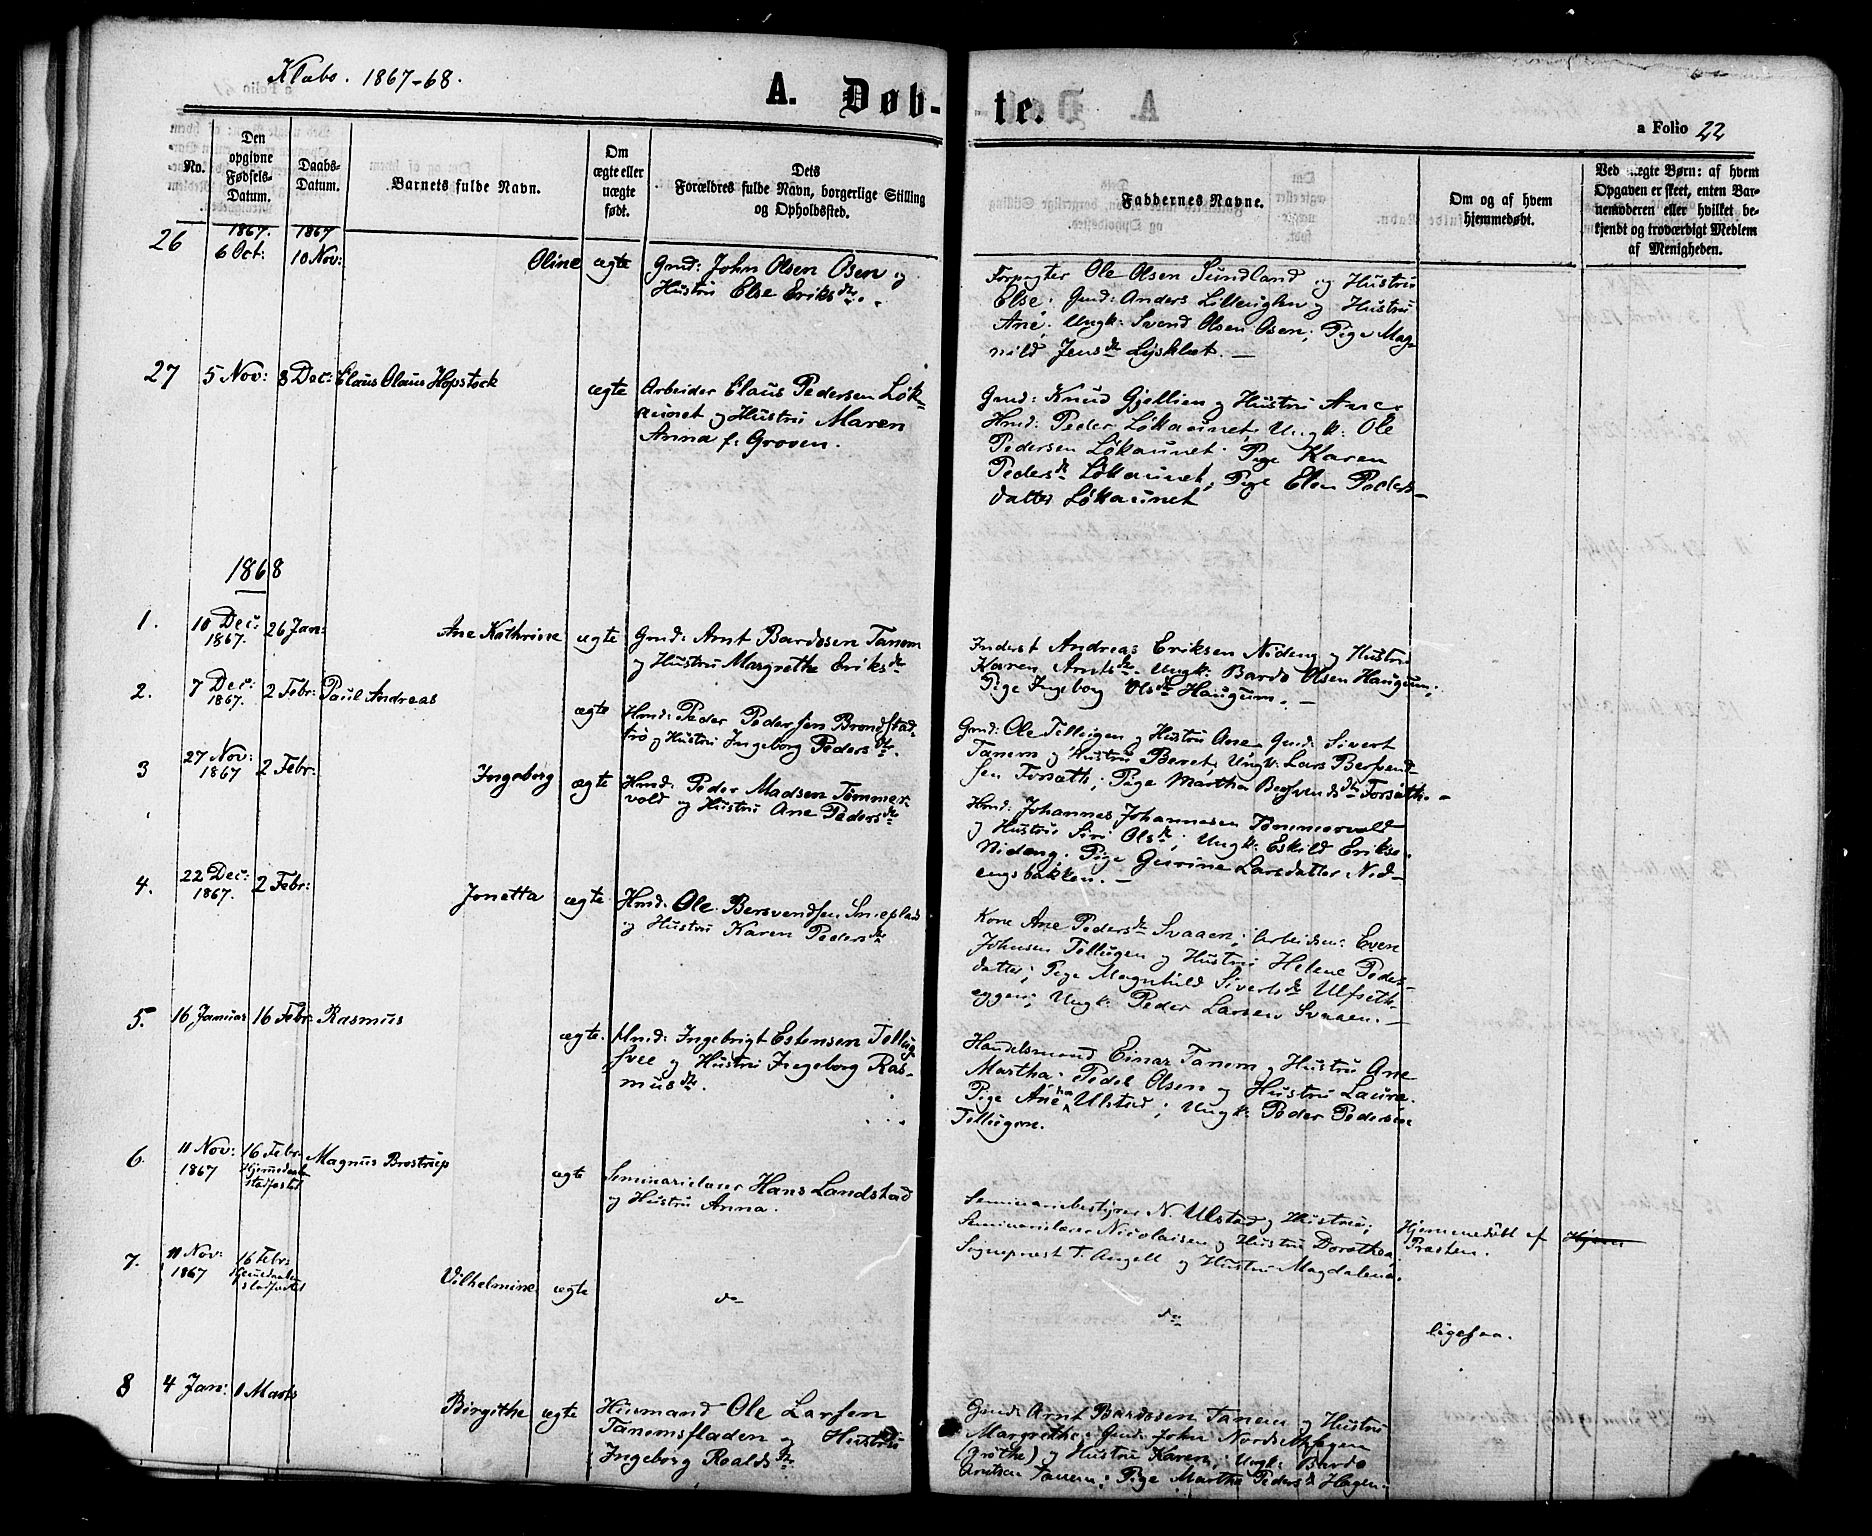 Klæbo. 1867-68.
A. Døb-te.
a Folio 22
No.
Den opgivne Fødsels-Datum.
Daabs-Datum.
Barnets fulde Navn.
Om ægte eller uægte født.
Dets Forældres fulde Navn, borgerlige Stilling og Opholdssted.
Faddernes Navne.
Om og af hvem hjemmedøbt.
Ved uægte Børn: af hvem Opgaven er skeet, enten Barnemoderen eller hvilket bekjendt og troværdigt Medlem af Menigheden.
1867. 1867
26 6 Oct: 10 Nov: Oline ægte Gmd: John Olsen Osen og
Hustru Else Eriksdr.
Forpagter Ole Olsen Sundland og Hustru
Else; Gmd: Anders Lilleuglen og Hustru
Ane; Ungk: Svend Olsen Osen; Pige Mag-
nild Jensdr Lysklæt. —
27 5 Nov: 8 Dec: Claus Olaus Hopstock ægte Arbeider Claus Pedersen Løk-
aunet og Hustru Maren
Anna f: Groven.
Gmd: Knud Gjellien og Hustru Ane.
Hmd: Peder Løkaunet; Ungk: Ole
Pedersen Løkaunet. Pige Karen
Pedersdr Løkaunet; Pige Elen Peders-
datter Løkaunet
1868
1. 10 Dec: 1867. 26 Jan: Ane Kathrine ægte Gmd: Arnt Bardosen Tanem
og Hustru Margrethe Eriksdr
Inderst Andreas Eriksen Nideng og Hustru
Karen Arntsdr. Ungk: Bardo Olsen Haugum;
Pige Ingeborg Olsdr Haugum. —
2. 7 Dec: 1867. 2 Febr: Paul Andreas ægte Hmd: Peder Pedersen Brondstad-
trø og Hustru Ingeborg Pedersdtr.
Gmd: Ole Tellugen og Hustru Ane Gmd: Sivert
Tanem og Hustru Beret; Ungk: Lars Bersvend-
sen Forsæth; Pige Martha Bersvendsdtr Forsæth. —
3 27 Nov: 1867 2 Febr: Ingeborg ægte Hmd: Peder Madsen Tømmer-
vold og Hustru Ane Pedersdtr
Hmd: Johannes Johannesen Tømmervold
og Hustru Siri Olsdr; Ungk: Eskild Eriks.
Nideng. Pige Gurine Larsdatter Nid-
engsbakken. —
4. 22 Dec: 1867. 2 Febr: Jonetta ægte Hmd: Ole Bersvendsen Sneeplads
og Hustru Karen Pedersdtr
Kone Ane Pedersdr Svaaen; Arbeidsm: Even
Johnsen Tellugen og Hustru Helene Peders-
datter; Pige Magnhild Sivertsdr Ulfseth-
eggen; Ungk: Peder Larsen Svaaen. —
5. 16 Januar 16 Febr: Rasmus ægte. Hmd: Ingebrigt Estensen Tellug-
svee og Hustru Ingeborg Ras-
musdtr.
Handelsmand Einar Tanem og Hustru Ane
Martha. Peder Olsen og Hustru Laura.
Pige Ane Ulstad; Ungk: Peder Pedersen
Tellugen.
6. 11 Nov: 1867 16 Febr. Hjemmedaaben stadfæstet Magnus Brostrup ægte Seminarielærer Hans Landstad
og Hustru Anna.
Seminariebestyrer N. Ulstad og Hustru;
Seminarielærer Nicolaisen og Hustru Dorothea;
Sognepræst T. Angell og Hustru Magdalena.
Hjemmedøbt af
Præsten.
7. 11 Nov: 1867 16 Febr. Hjemedaaben stadfæstet Vilhelmine ægte do
do
ligesaa.
8 4 Jan: 1 Marts Birgithe ægte Husmand Ole Larsen
Tanemsfladen og Hustru
Ingeborg Roaldsdtr
Gmd: Arnt Bardosen Tanem og Hustru
Margrethe. Gmd: John Nordset
(Grøthe) og Hustru Karen; Ungk: Bardo
Arntsen Tanem; Pige Martha Pedersdr Hagen.